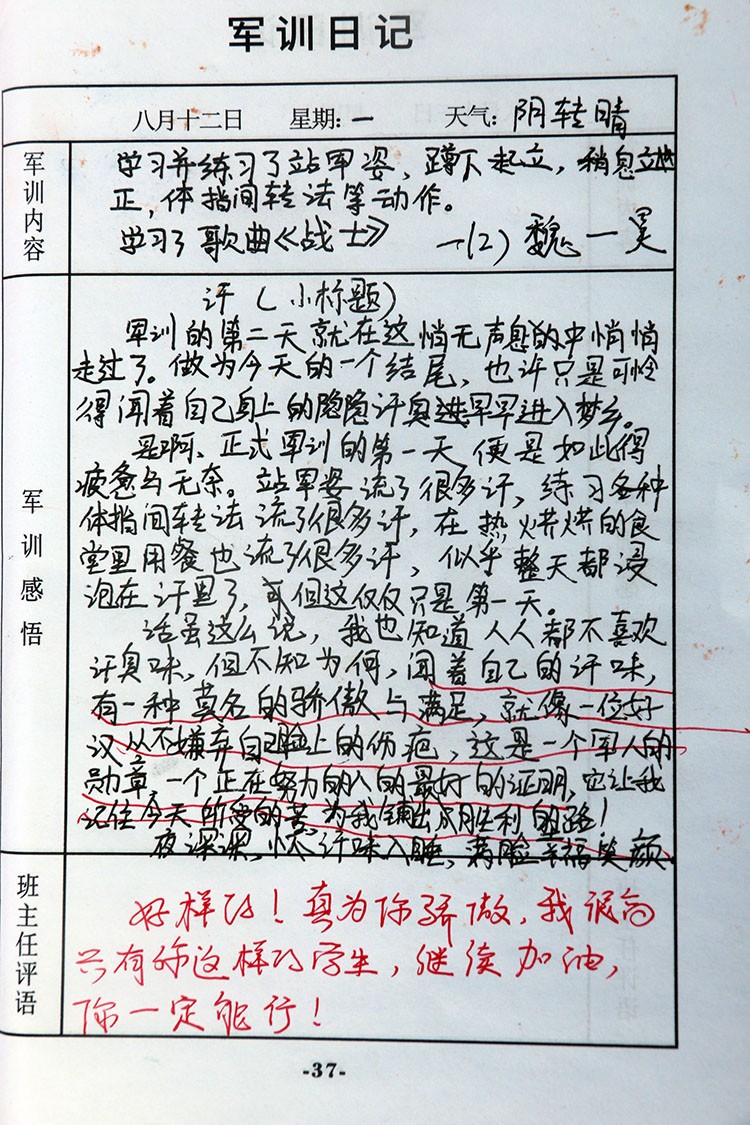 军训日记
八月十二日 星期:一 天气:阴转晴
军训内容
学习并练习了站军姿,蹲下起立,稍息立
正,体指间转法等动作。
学习了歌曲《战士》 一(2)魏一昊
军训感悟
汗(小标题)
军训的第二天就在这悄无声息的中悄悄
走过了。做为今天的一个结尾,也许只是可怜
得闻着自己身上的隐隐汗臭进早早进入梦乡。
是啊、正式军训的第一天便是如此得
疲惫与无奈。站军姿流了很多汗,练习各种
体指间转法流了很多汗,在热烘烘的食
堂里用餐也流了很多汗,似乎整天都浸
泡在汗里了,但这仅仅只是第一天。
话虽这么说,我也知道人人都不喜欢
汗臭味,但不知为何,闻着自己的汗味,
有一种莫名的骄傲与满足,就像一位好
汉从不嫌弃自己脸上的伤疤,这是一个军人的
勋章,一个正在努力的人的最好的证明,它让我
记住今天所受的苦,为我铺出成胜利的路!
夜深深,汗味入睡,满脸幸福笑颜
班主任评语
好样的!真为你骄傲,我很高
兴有你这样的学生,继续加油,
你一定能行!
-37-